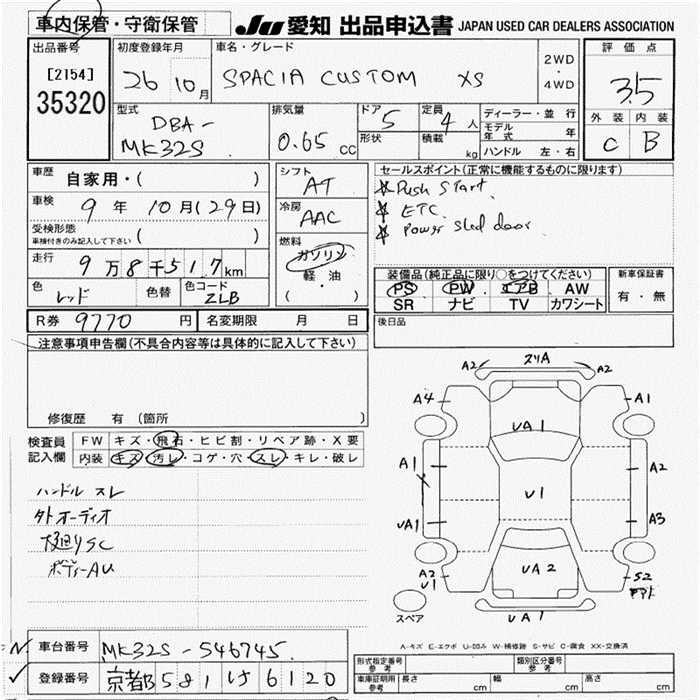 車内保管・守衛保管
JU 愛知 出品申込書 JAPAN USED CAR DEALERS ASSOCIATION
出品番号
[2154]
35320
初度登録年月
26 10月
車名・グレード
SPACIA CUSTOM XS
2WD
・
4WD
評価点
3.5
外装 内装
C B
型式
DBA-
MK32S
排気量
0.65 cc
ドア 5
形状
定員 4 人
積載 kg
ディーラー・並行
モデル年式 年
ハンドル 左・右
車歴 自家用・( )
車検 9年 10月(29日)
受検形態
車検付きのみ記入して下さい ( )
走行 9万8千517km
色 レッド 色替 色コード ZLB
シフト
AT
冷房
AAC
燃料
ガソリン
軽・油
( )
セールスポイント(正常に機能するものに限ります)
Push Start
ETC
Power sled door
装備品(純正品に限り○をつけてください)
PS PW エアB AW
SR ナビ TV カワシート
新車保証書
有・無
R券 9770 円 名変期限 月 日
後日品
注意事項申告欄(不具合内容等は具体的に記入して下さい)
修復歴 有 (箇所 )
検査員
記入欄
FW キズ・飛石・ヒビ割・リペア跡・X要
内装 キズ・汚レ・コゲ・穴・スレ・キレ・破レ
ハンドル スレ
外オーディオ
SC
ボディーAU
A2 スリA A2
A4 UA1 A1
A1 U1 A2
UA1 A3
A2 U1 UA2 S2
スペア
UA1
A-キズ E-エクボ U-凹み W-補修跡 S-サビ C-腐食 XX-交換済
車台番号 MK32S-546745
登録番号 京都 581 け 6120
形式指定番号
参考
類別区分番号
参考
車庫証明用
参考
長さ cm 幅 cm 高さ cm